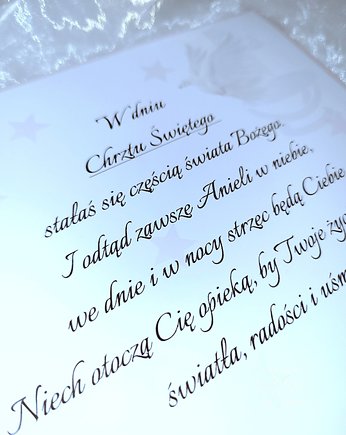 W dniu
Chrztu Świętego
stałaś się częścią świata Bożego.
I odtąd zawsze Anieli w niebie,
we dnie i w nocy strzec będą Ciebie
Niech otoczą Cię opieką, by Twoje
światła, radości i